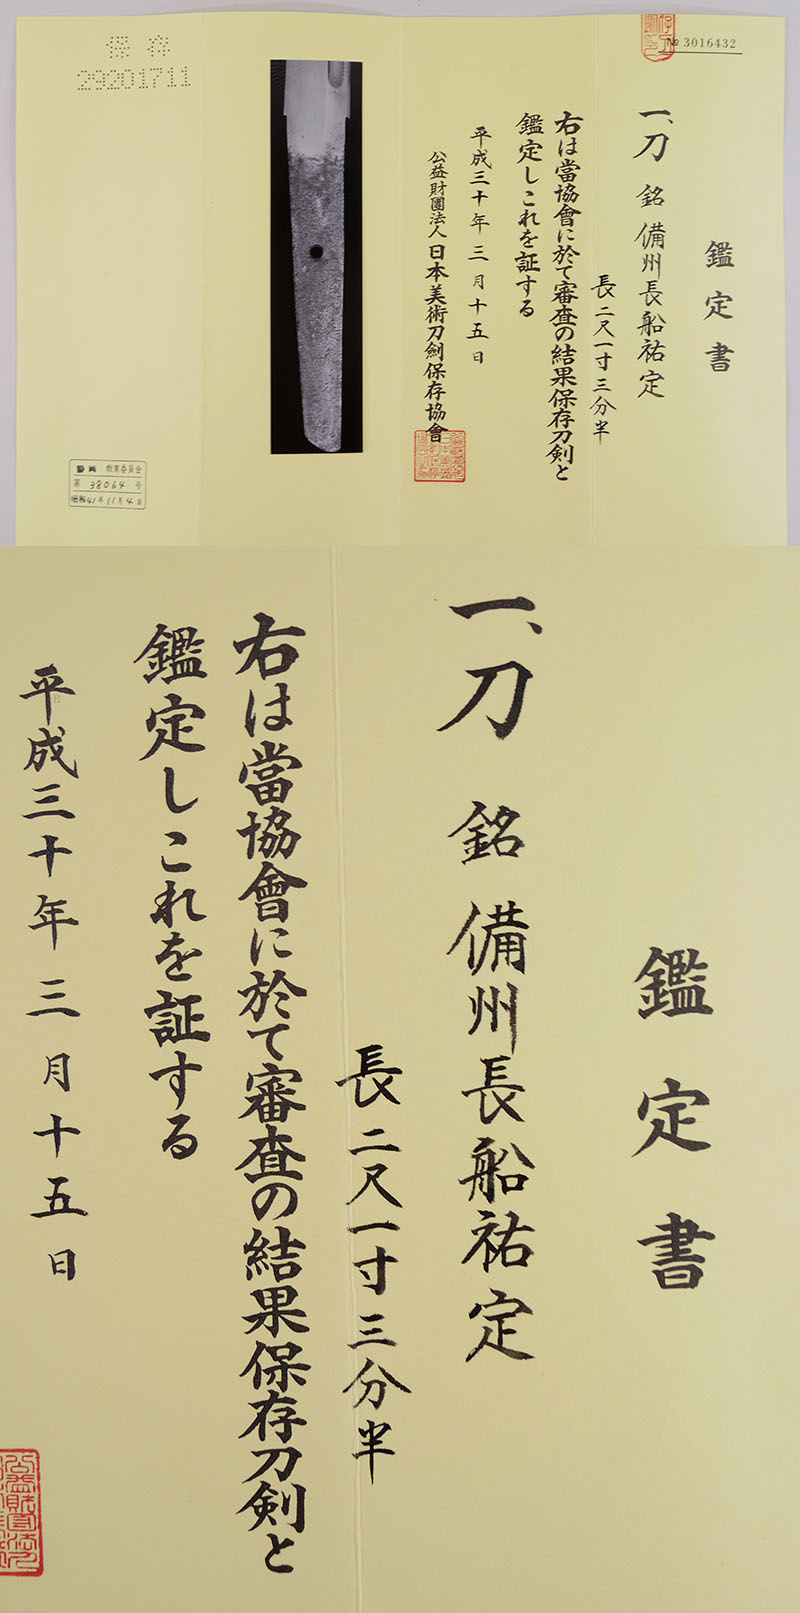 № 3016432
鑑定書
一、刀 銘 備州長船祐定
長二尺一寸三分半
右は當協會に於て審査の結果保存刀剣と
鑑定しこれを証する
平成三十年三月十五日
公益財團法人 日本美術刀剣保存協會
保存
29201711
教育委員会
第 38064 号
昭和41年11月4日
鑑定書
一、刀 銘 備州長船祐定
長二尺一寸三分半
右は當協會に於て審査の結果保存刀剣と
鑑定しこれを証する
平成三十年三月十五日